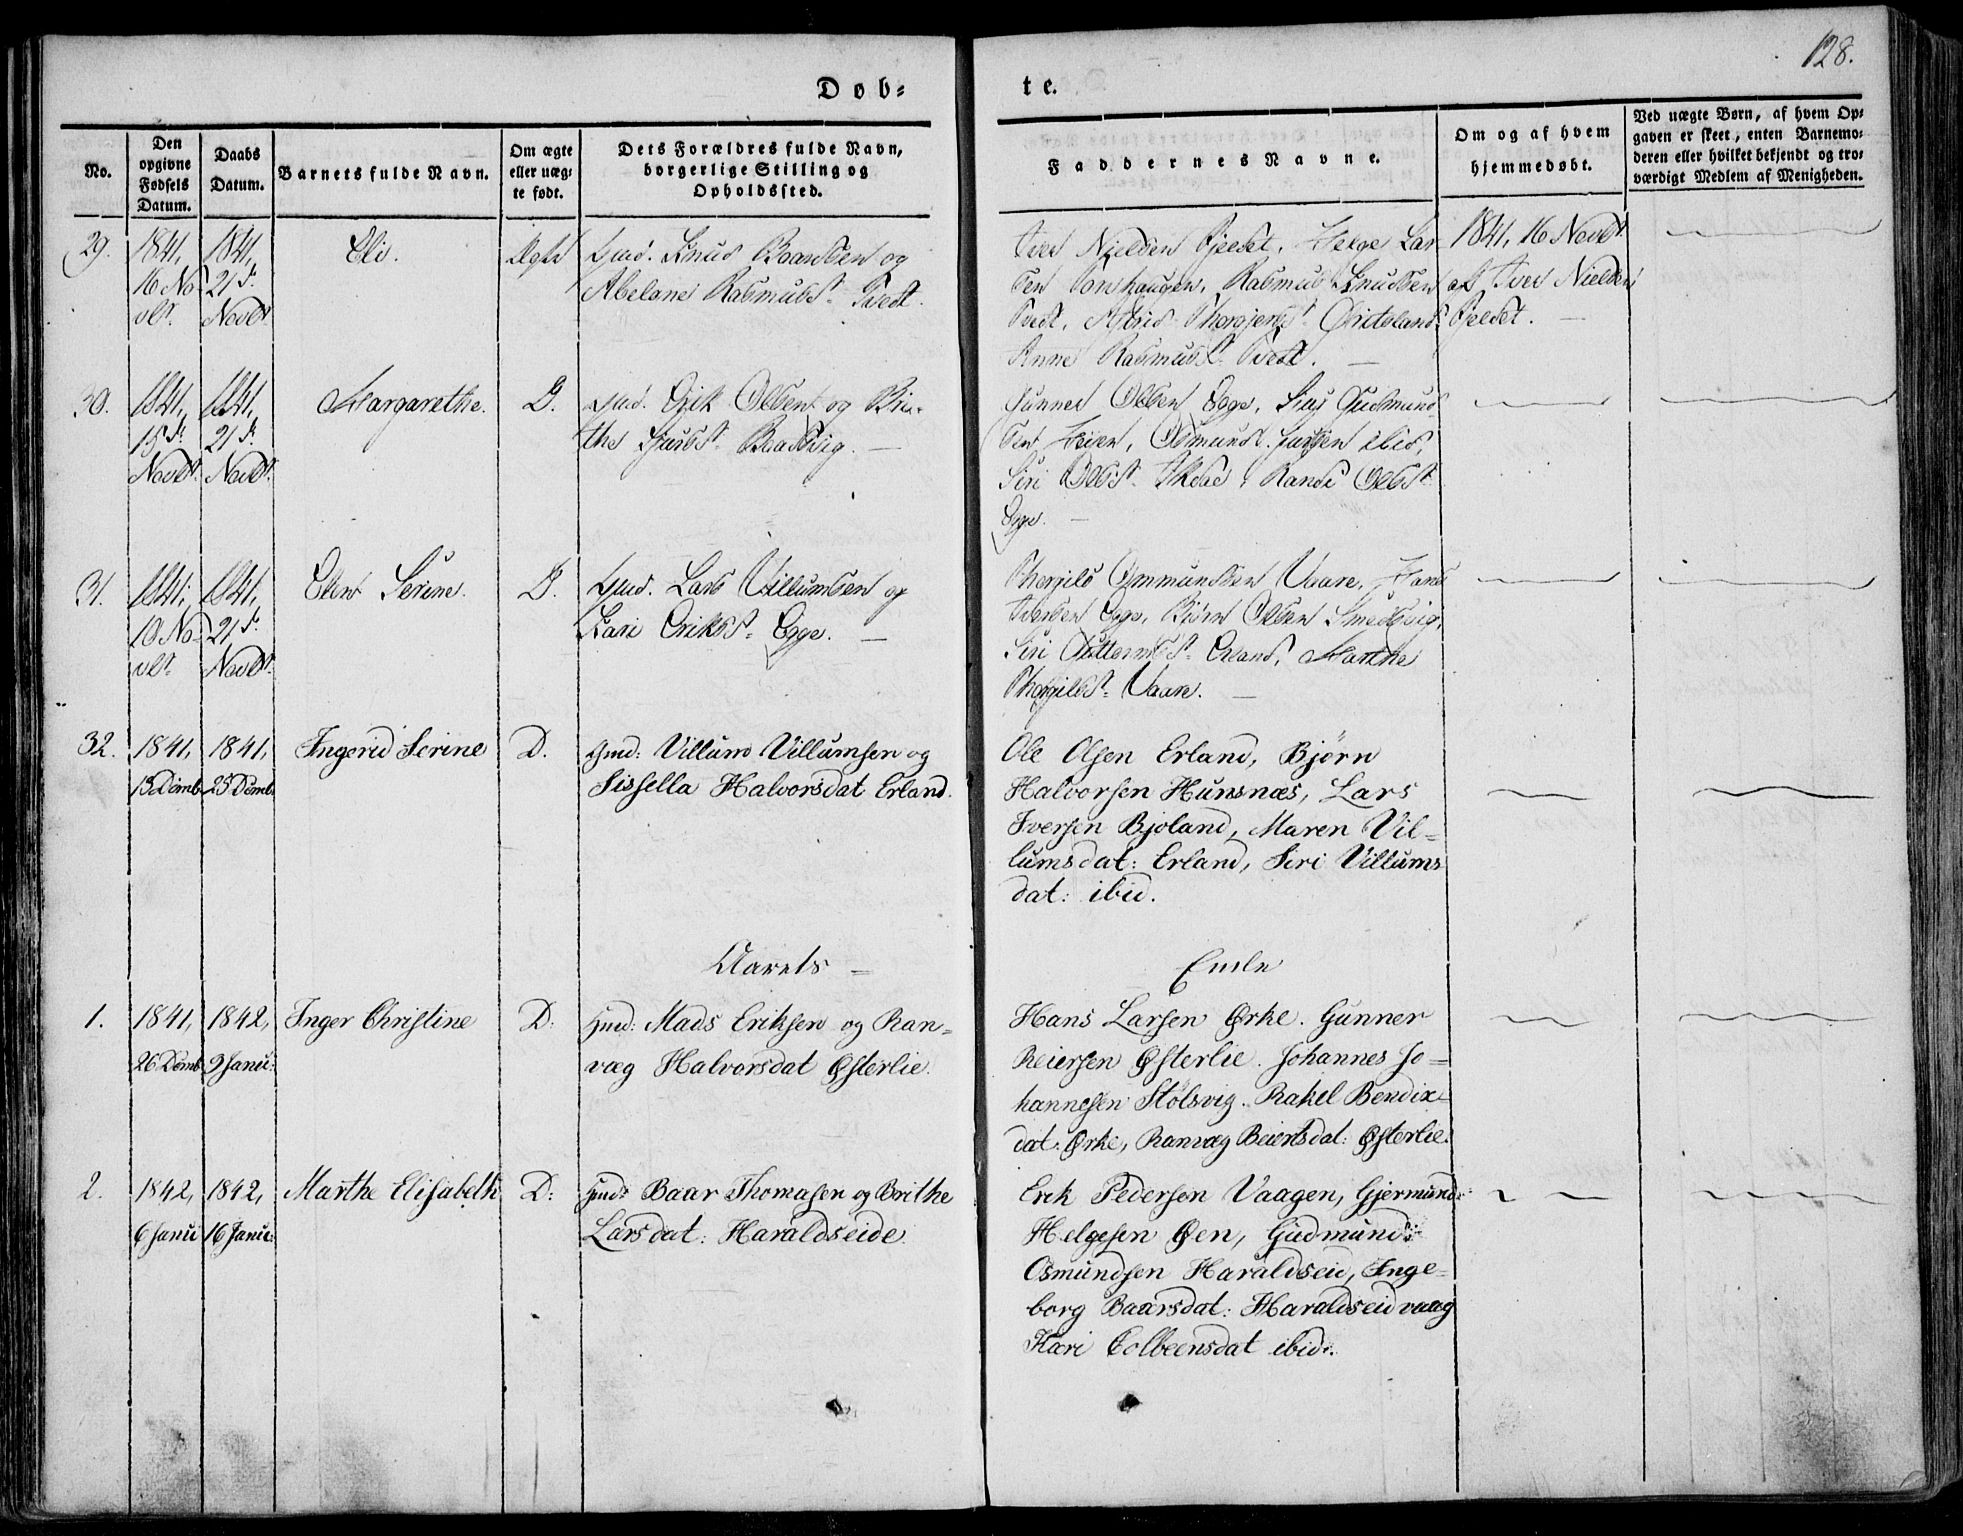 128.
Døb=
te.
No.
Den opgivne Fødsels Datum.
Daabs Datum.
Barnets fulde Navn.
Om ægte eller uæg= te født.
Dets Forældres fulde Navn, borgerlige Stilling og Opholdssted.
Faddernes Navne.
Om og af hvem hjemmedøbt.
Ved uægte Børn, af hvem Op= gaven er skeet, enten Barnemo= deren eller hvilket bekjendt og tro= værdigt Medlem af Menigheden.
29.
1841,
16 No
vbr.
1841,
21 d.
Novbr.
Eli.
Ægte
Gmd. Knud Baardsen og
Abelone Rasmusdt. Tvedt.
Iver Nielsen Fjeldet, Helge Lar
sen Tonhaugen, Rasmus Knudsen
Tvedt, Astrid
Anne Rasmusdt. Tvedt. —
1841, 16 Novbr.
af Iver Nielsen
Fjeldet. —
30.
1841,
15 d.
Novbr.
1841,
21 d.
Novbr.
Margarethe.
D.
Gmd. Erik Olsen og Bri=
the
Gunner Olsen Egge, Gudmund
sen Osmund ibid,
Siri Olsdt. Randi Olsdt.
Egge. —
31.
1841,
10 No=
vbr.
1841,
21 d.
Novbr.
Elen Serine.
D.
Gmd. Lars Villumsen og
Kari Eriksdt. Egge. —
Thorgils Ommundsen Vaare, Hans
Iversen Egge, Bjørn Olsen Smedsvig,
Siri Guttormsdt. Erland, Marthe
Thorgilsdt. Vaare. —
32.
1841,
15 Decmb.
1841,
25 Decmb.
Ingerid Serine
D.
Gmd: Villum Villumsen og
Sissella Halvorsdat Erland.
Ole Olsen Erland, Bjørn
Halvorsen Hunsnæs, Lars
Iversen Bjoland, Maren Vil=
lumsdat: Erland, Siri Villums
dat: ibid.
Aarets =
Ende
1.
1841,
26 Decmb
1842,
9 Janu:
Inger Christine
D:
Gmd: Mads Eriksen og Ran=
væg Halvorsdat Østerlie.
Hans Larsen Ørke. Gunner
Reiersen Østerlie. Johannes Jo=
hannesen Stølsvig. Rakel Bendix=
dat: Ørke, Ranvæg Beiertsdat: Østerlie.
2.
1842,
6 Janu
1842,
16 Janu:
Marthe Elisabeth
D:
Gmd: Baar Thomasen og Brithe
Larsdat: Haraldseide.
Erik Pedersen Vaagen, Gjermund:
Helgesen Øen, Gudmund:
Osmundsen Haraldseid, Inge=
borg Baarsdat: Haraldseidvaag
Kari Colbeensdat ibid:.